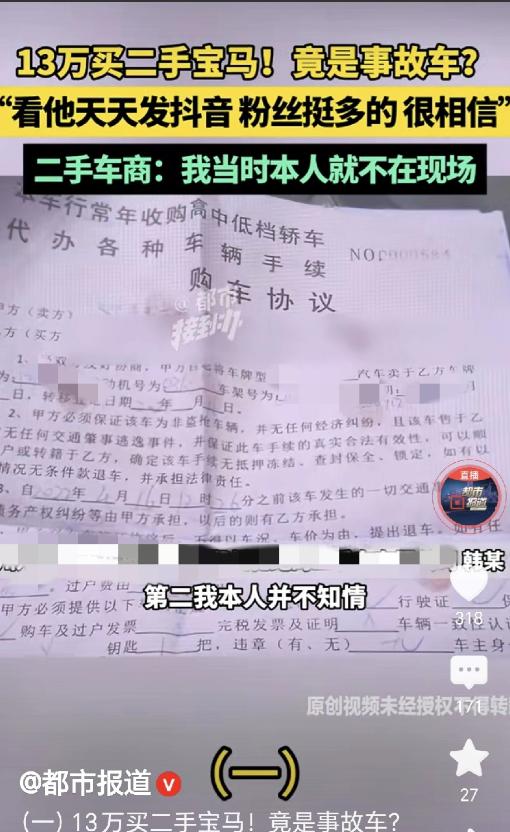 13万买二手宝马！竟是事故车？
“看他天天发抖音 粉丝挺多的 很相信”
二手车商：我当时本人就不在现场
本车行常年收购高中低档轿车
代办各种车辆手续
NO
购车协议
@都市
接到办
方（卖方）
方（买方
汽车卖于乙方
动机号为
车架号为
日，转移
年 月 日。
2、甲方必须保证该车为非盗抢车辆，并无任何经济纠纷，且该车售于乙
无任何交通肇事逃逸事件，并保证此车手续的真实合法有效性，可以顺
户或转籍于乙方，确定该车手续无抵押冻结、查封保全、锁定，如有以
情况无条件款退车，并承担法律责任。
直播
都市报道
、自2022年4月16日12时26分之前该车发生的一切交通
债务产权纠纷等由甲方承担，以后的则有乙方承担。
不得以车况、车价为由，提出退车，
韩某
、过户费由
第二我本人并不知情
甲方必须提供以下
行驶证
318
购车及过户发票
完税发票及证明
车辆一致性认
171
钥匙 把，违章（有、无）
车主身
原创视频未经授权不得转
（一）
27
@都市报道
(一) 13万买二手宝马！竟是事故车？